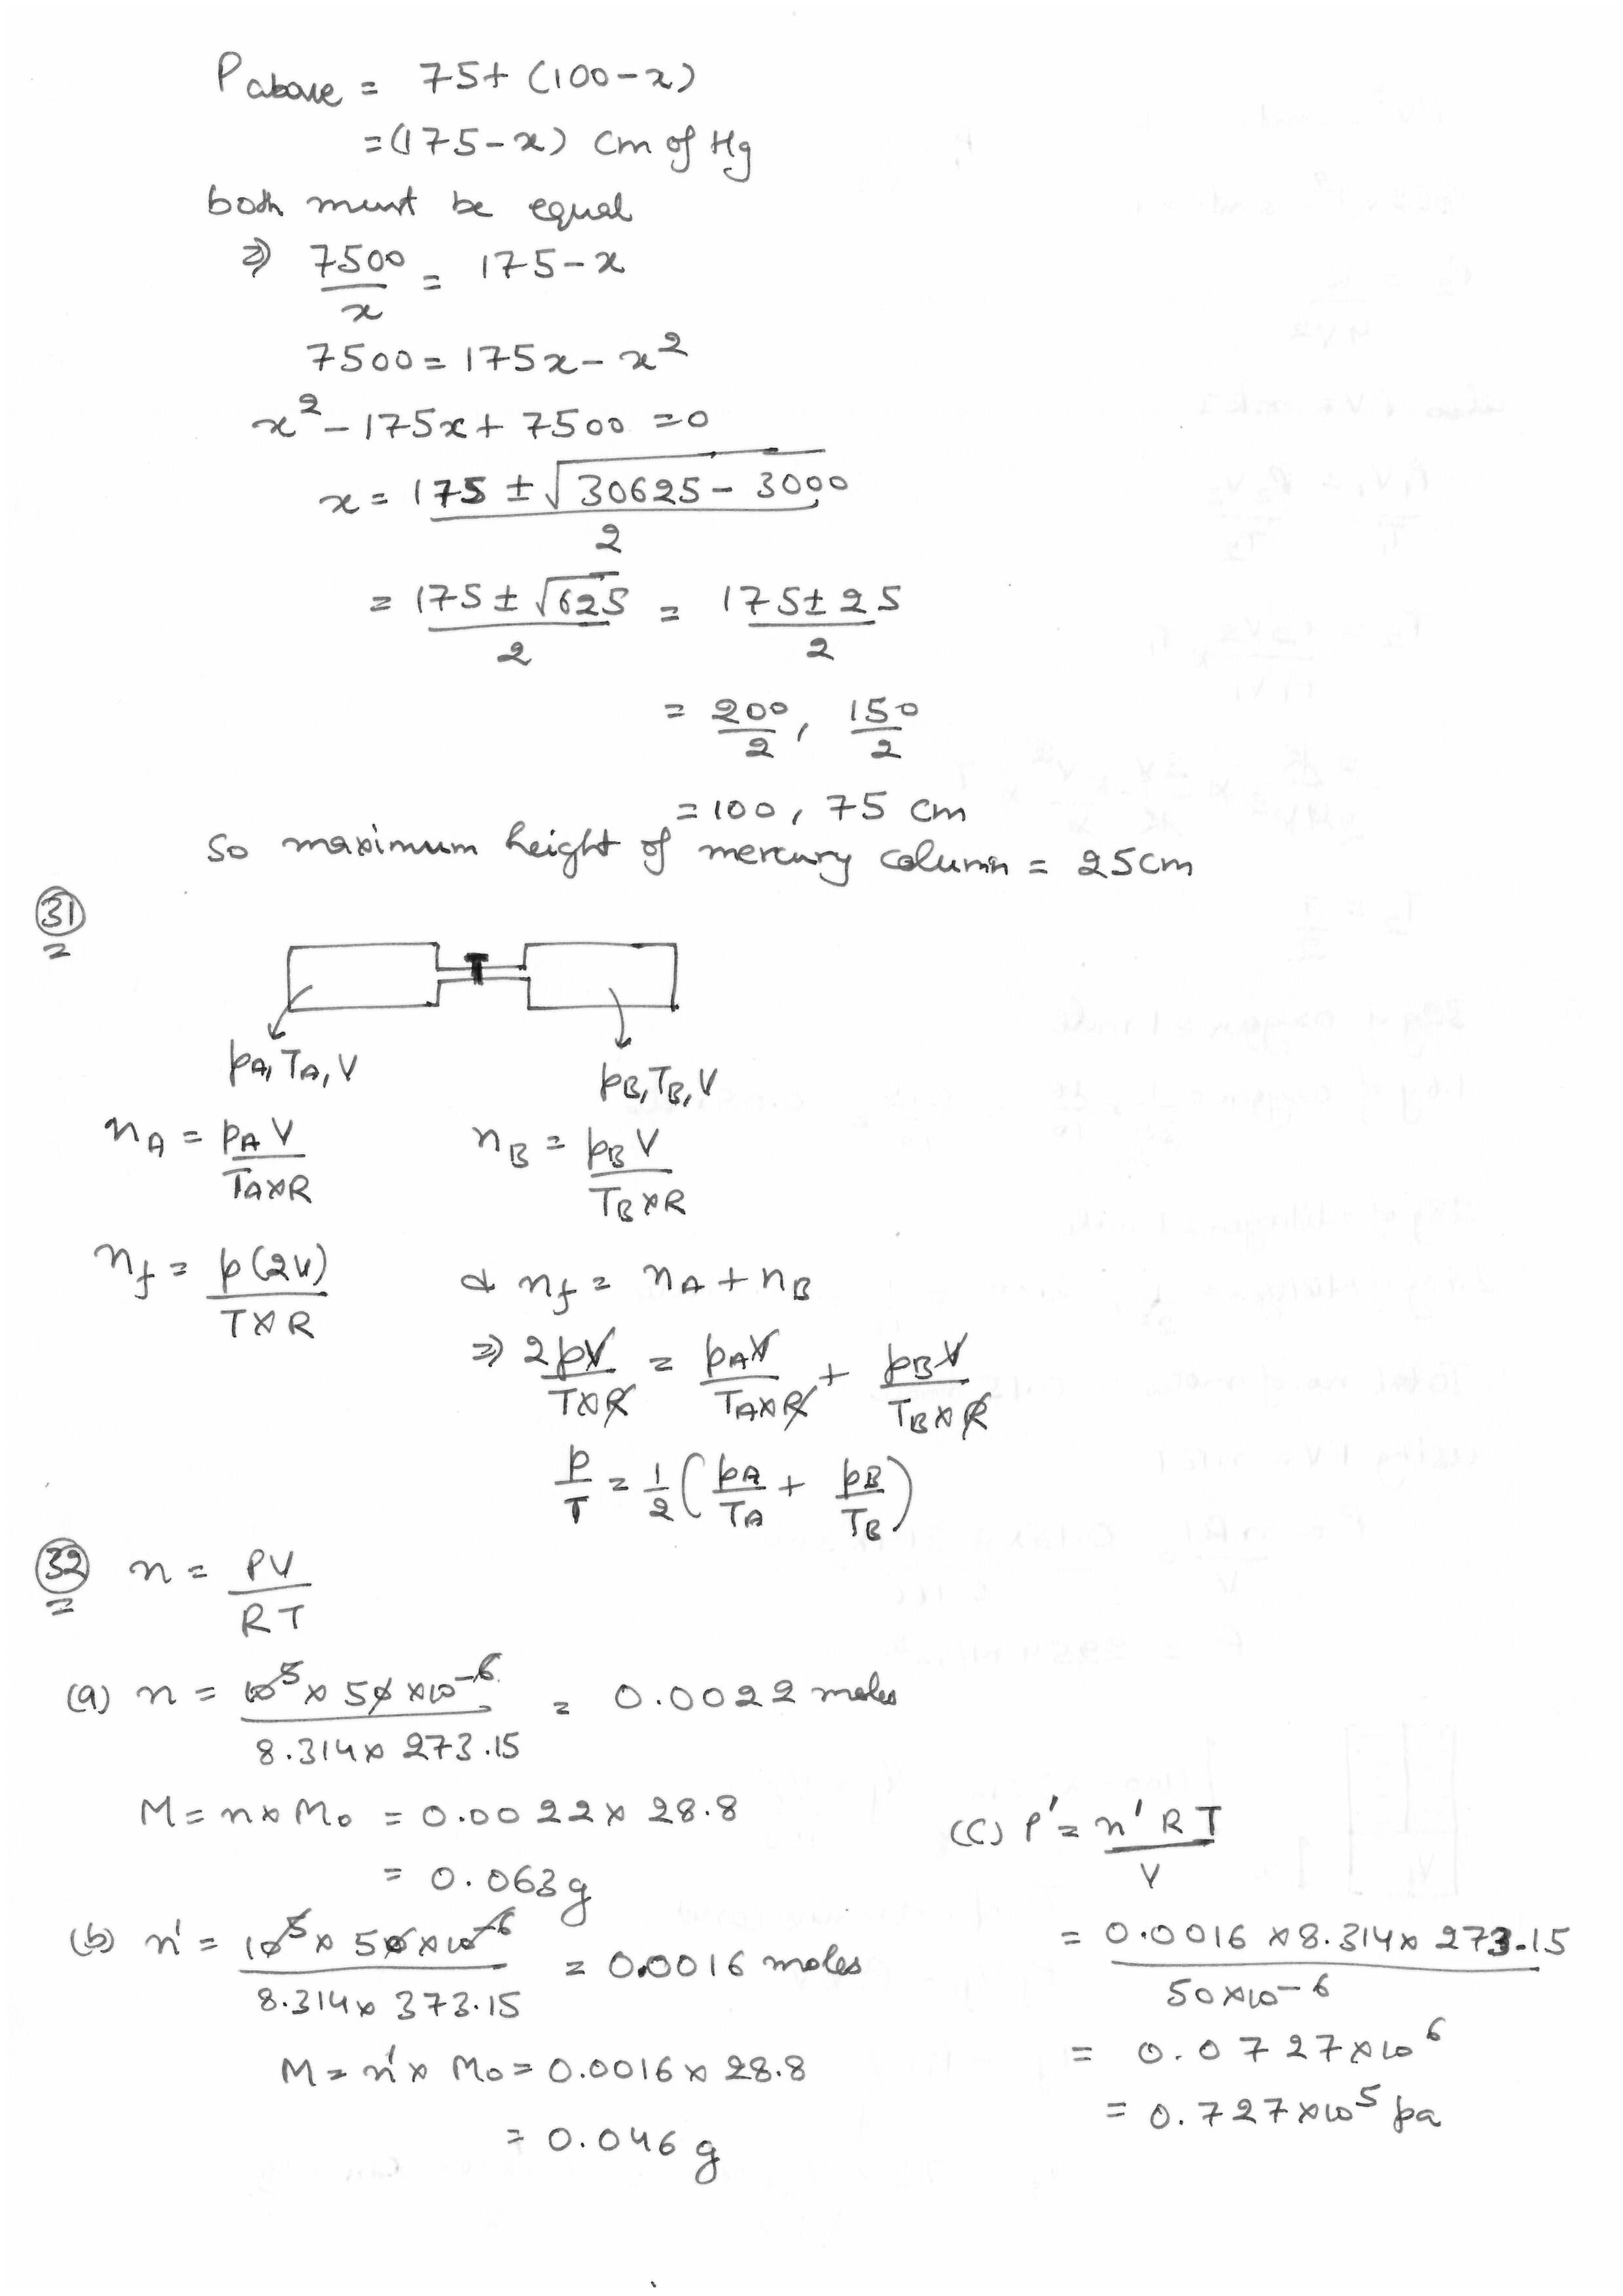 P above = 75+ (100-x)
=(175-x) cm of Hg
both must be equal
⇒ 7500/x = 175-x
7500 = 175x - x²
x² - 175x + 7500 = 0
x = (175 ± √(30625 - 3000))/2
= (175 ± √625)/2 = (175 ± 25)/2
= 200/2, 150/2
= 100, 75 cm
So maximum height of mercury column = 25cm
31
pA, TA, V
pB, TB, V
nA = pA V/(TA×R) nB = pB V/(TB×R)
nf = p(2V)/(T×R) & nf = nA + nB
⇒ 2pV/(T×R) = pA V/(TA×R) + pB V/(TB×R)
p/T = 1/2 (pA/TA + pB/TB)
32 n = PV/RT
(a) n = (10⁵ × 50 × 10⁻⁶)/(8.314 × 273.15) = 0.0022 moles
M = n × Mo = 0.0022 × 28.8
= 0.063 g
(b) n' = (10⁵ × 50 × 10⁻⁶)/(8.314 × 373.15) = 0.0016 moles
M = n' × Mo = 0.0016 × 28.8
= 0.046 g
(c) P' = n' R T/V
= (0.0016 × 8.314 × 273.15)/(50×10⁻⁶)
= 0.0727 × 10⁶
= 0.727 × 10⁵ pa